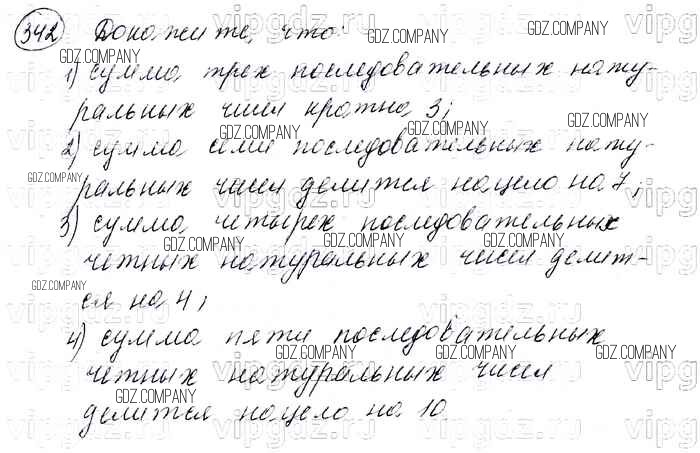 342 Докажите, что:
1) сумма трех последовательных нату-
ральных чисел кратна 3;
2) сумма семи последовательных нату-
ральных чисел делится нацело на 7;
3) сумма четырех последовательных
четных натуральных чисел делит-
ся на 4;
4) сумма пяти последовательных
четных натуральных чисел
делится нацело на 10